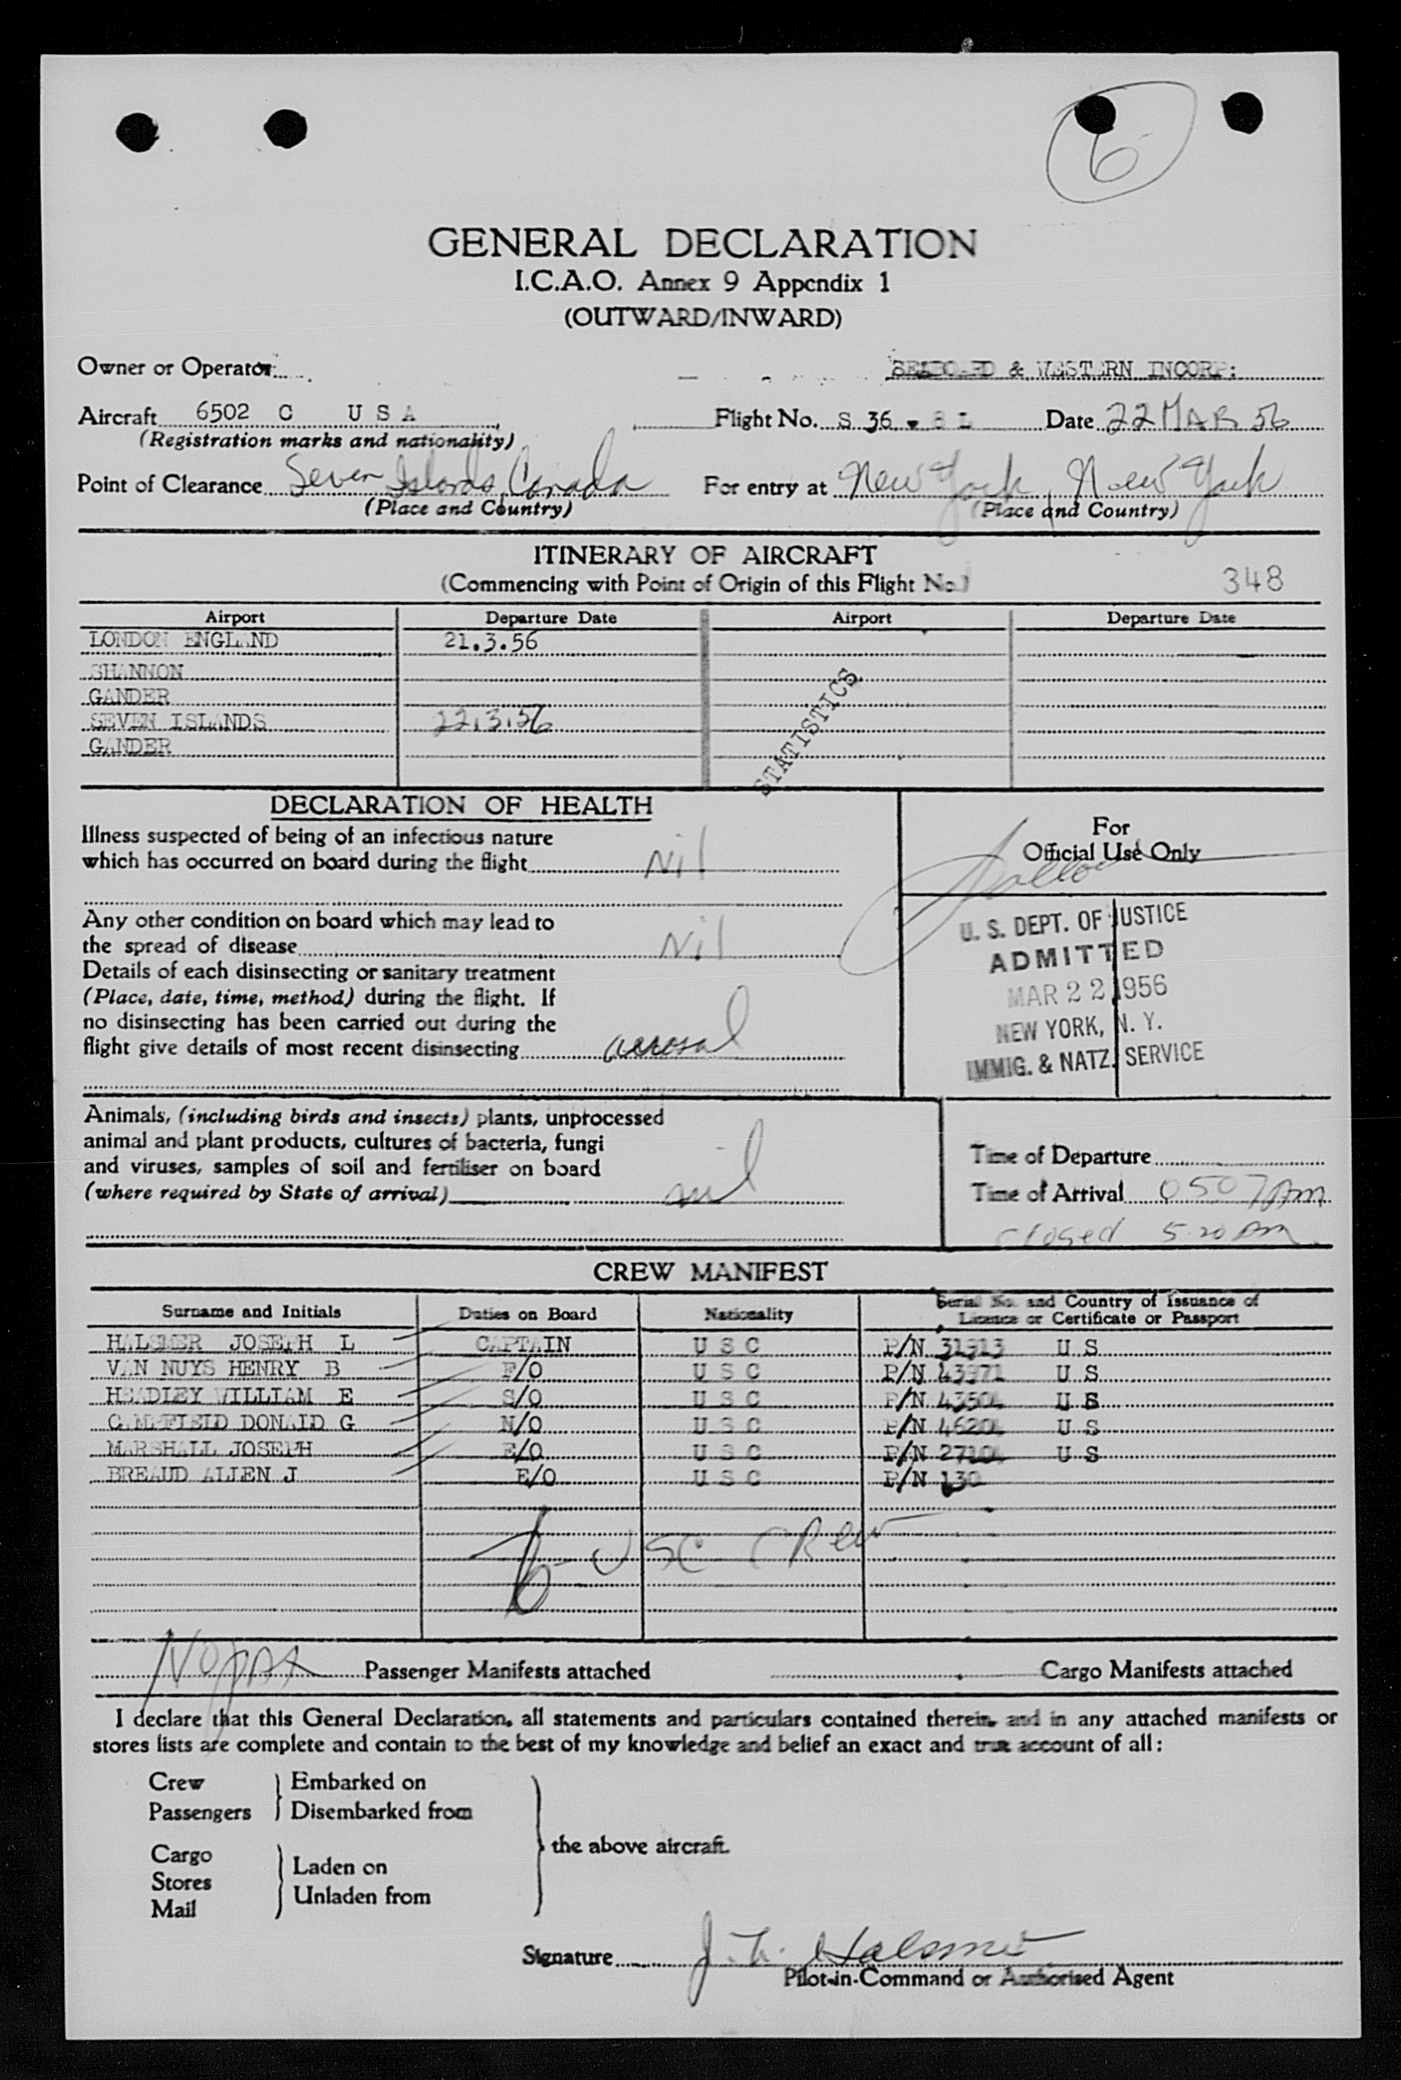 6
GENERAL DECLARATION
I.C.A.O. Annex 9 Appendix 1
(OUTWARD/INWARD)
Owner or Operator & WESTERN INCORP:
Aircraft 6502 C U S A Flight No. S 36 Date 22 MAR 56
(Registration marks and nationality)
Point of Clearance Seven Islands, Canada For entry at New York, New York
(Place and Country) (Place and Country)
ITINERARY OF AIRCRAFT
(Commencing with Point of Origin of this Flight No.) 348
Airport Departure Date Airport Departure Date
LONDON ENGLAND 21.3.56
SHANNON
GANDER
SEVEN ISLANDS 22.3.56
GANDER
STATISTICS
DECLARATION OF HEALTH
Illness suspected of being of an infectious nature
which has occurred on board during the flight Nil
Any other condition on board which may lead to
the spread of disease Nil
Details of each disinsecting or sanitary treatment
(Place, date, time, method) during the flight. If
no disinsecting has been carried out during the
flight give details of most recent disinsecting aerosal
For
Official Use Only
U. S. DEPT. OF JUSTICE
ADMITTED
MAR 22 1956
NEW YORK, N. Y.
IMMIG. & NATZ. SERVICE
Animals, (including birds and insects) plants, unprocessed
animal and plant products, cultures of bacteria, fungi
and viruses, samples of soil and fertiliser on board
(where required by State of arrival) nil
Time of Departure
Time of Arrival 0507 Am
closed 5.20 Am.
CREW MANIFEST
Surname and Initials Duties on Board Nationality Serial No. and Country of Issuance of
Licence or Certificate or Passport
HALSMER JOSEPH L CAPTAIN U S C P/N 31913 U S
VAN NUYS HENRY B F/O U S C P/N 43971 U S
HEADLEY WILLIAM E S/O U S C P/N 43504 U S
CAMPFIELD DONALD G N/O U S C P/N 46204 U S
MARSHALL JOSEPH E/O U S C P/N 27104 U S
BREAUD ALLEN J E/O U S C P/N 130
6 - USC CREW
NO PAX Passenger Manifests attached Cargo Manifests attached
I declare that this General Declaration, all statements and particulars contained therein, and in any attached manifests or
stores lists are complete and contain to the best of my knowledge and belief an exact and true account of all:
Crew Embarked on
Passengers Disembarked from
the above aircraft.
Cargo
Stores Laden on
Mail Unladen from
Signature J. L. Halsmer
Pilot-in-Command or Authorised Agent